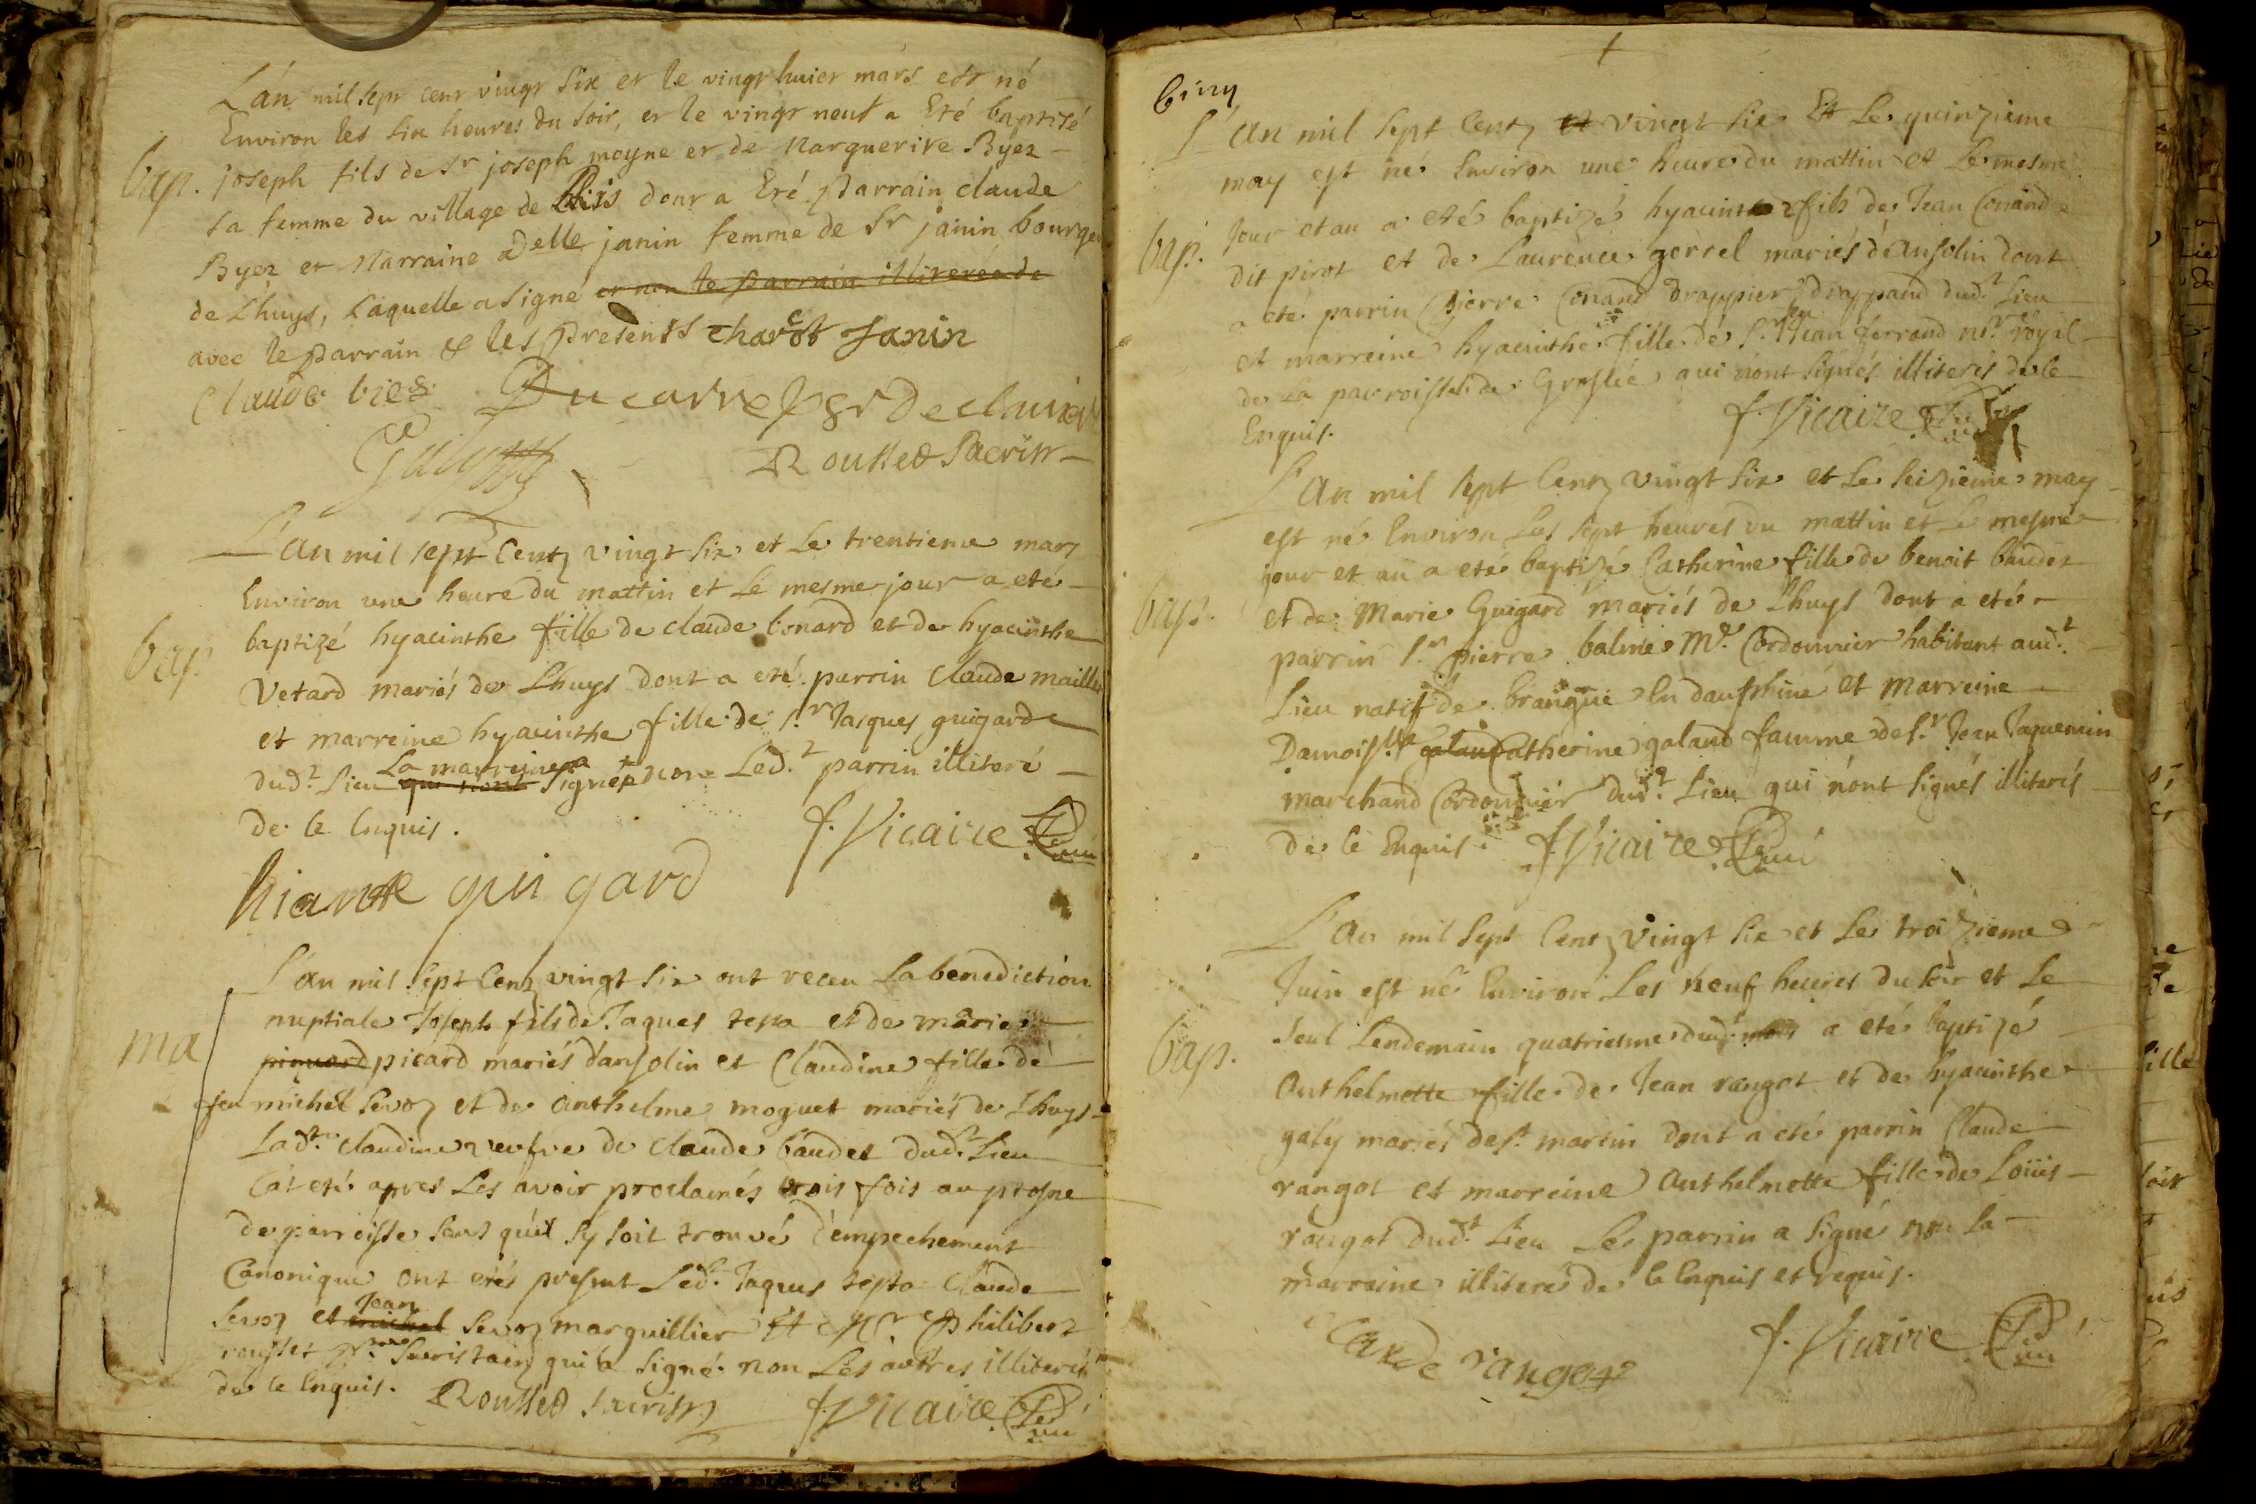 L'an mil sept cent vingt six et le vingt huict mars est né
Environ les six heures du soir, et le vingt neuf a Eté baptisé
bap. joseph fils de Sr joseph moyne et de Marguerite Byez
sa femme du village de dont a Eté Parrain claude
Byez et Marraine Delle janin femme de Sr janin bourge
de Lhuys, Laquelle a signé et non le parrain illiteré de
avec le parrain & les presents charcot Janin
Claude biez Ducarre
Rousset Sacrist
L'an mil sept Centz vingt six et Le trentieme mars
Environ une heure du mattin et Le mesme jour a eté
bap. baptizé hyacinthe fille de claude bonard et de hyacinthe
Vetard mariés de Lhuys dont a eté parrin Claude maillet
et marreine hyacinthe fille de Sr Jacques guigard
dud.t Lieu qui n'ont La marreine a signé et non Led.t parrin illiteré
de ce Enquis. f. Vicaire Curé
hiante guigard
L'an mil Sept Centz vingt six ont receu La benediction
ma nuptiale Joseph fils de Jaques testa et de marie
pinuard picard mariés d'ansolin et Claudine fille de
feu michel Sevoz et de Anthelme moguet mariés de Lhuys
Lad.te Claudine veufve de Claude baudet dud.t Lieu
Ca'eté apres Les avoir proclamés trois fois au prosne
de parroisse sans qu'il sy soit trouvé d'empechement
Canonique ont etés present Led.t Jaques testa Claude
Sevoz et michel Jean Sevoz marguillier Et Mr Philibert
rousset Sacristain qui a signé non Les autres illiterés
de ce Enquis. Rousset Sacrist f. Vicaire Curé
L'an mil sept Centz et vingt six Et Le quinzieme
may est né Environ une heure du mattin et Le mesme
bap. Jour et an a eté baptizé hyacinthe fils de Jean Conand
dit pirot et de Laurence gorrel mariés d'ansolin dont
a eté parrin pierre Conand drappier dud.t Lieu
et marreine hyacinthe fille de Sr Jean ferrand n.re royal
de La parroisse de Groslée qui n'ont signés illiterés de ce
Enquis. f. Vicaire Curé
L'an mil sept Centz vingt six et Le seizieme may
est né Environ Les sept heures du mattin et Le mesme
jour et an a eté baptizé Catherine fille de benoit baudet
bap. et de Marie Guigard mariés de Lhuys dont a eté
parrin Sr pierre balme M.e Cordonnier habitant aud.t
Lieu natif de brangue En dauphiné et Marreine
Damois.lle galand Catherine galand famme de Sr Jean Jaquemin
marchand Cordonnier dud.t Lieu qui n'ont signés illiterés
de ce Enquis. f. Vicaire Curé
L'an mil Sept Centz vingt six et Le troizieme
Juin est né Environ Les neuf heures du soir et Le
seul Lendemain quatriesme dud.t mois a eté baptizé
bap. Anthelmette fille de Jean rangot et de hyacinthe
galy mariés de St martin dont a eté parrin Claude
rangot et marreine Anthelmette fille de Loüis
rangot dud.t Lieu Le parrin a signé non La
marreine illiteré de ce Enquis et requis.
Claude rangot f. Vicaire Curé